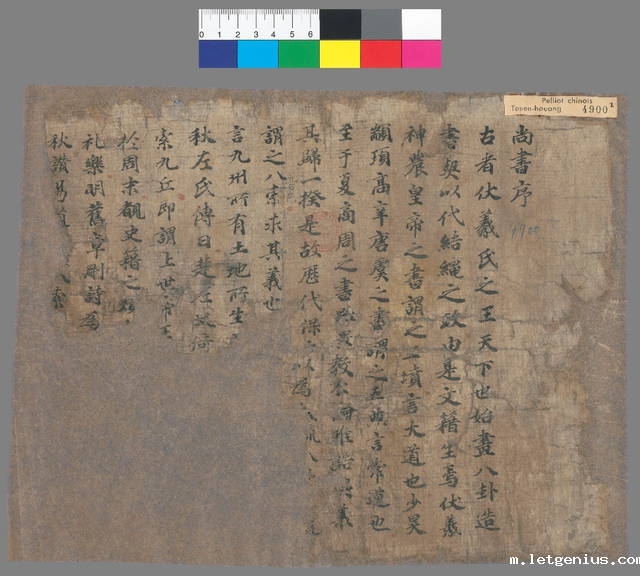 0 1 2 3 4 5 6
Pelliot chinois
Touen-houang 4900
尚書序
古者伏羲氏之王天下也始畫八卦造
書契以代結繩之政由是文籍生焉伏羲
神農皇帝之書謂之三墳言大道也少昊
顓頊高辛唐虞之書謂之五典言常道也
至于夏商周之書雖設教不倫雅誥奧義
其歸一揆是故歷代保之以為大訓八
謂之八索求其義也
言九州所有土地所生
秋左氏傳曰楚左史倚
索九丘即謂上世帝王
於周末覩史籍之
礼樂明舊章刪詩為
秋讚易道八索
4900
m.letgenius.com